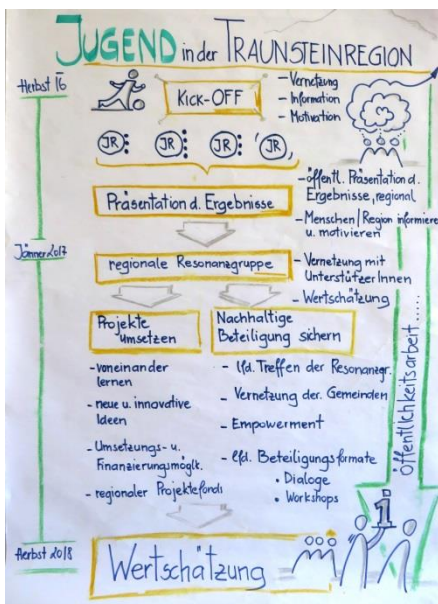 JUGEND in der TRAUNSTEINREGION
Herbst 16
KICK-OFF
- Vernetzung
- Information
- Motivation
JR
JR
JR
JR
Präsentation d. Ergebnisse
- öffentl. Präsentation d.
Ergebnisse, regional
- Menschen/Region informieren
u. motivieren
Jänner 2017
regionale Resonanzgruppe
- Vernetzung mit
UnterstützerInnen
- Wertschätzung
Projekte
umsetzen
- voneinander
lernen
- neue u. innovative
Ideen
- Umsetzungs- u.
Finanzierungsmöglk.
- regionaler Projektefonds
Nachhaltige
Beteiligung sichern
- lfd. Treffen der Resonanzgr.
- Vernetzung der Gemeinden
- Empowerment
- lfd. Beteiligungsformate
• Dialoge
• Workshops
öffentlichkeitsarbeit.....
Herbst 2018
Wertschätzung
1